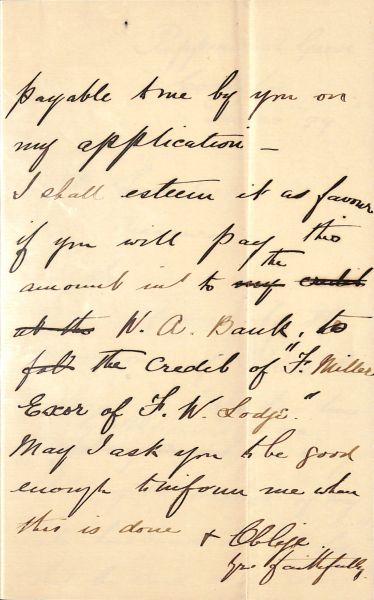 payable to me by you on
my application —
I shall esteem it as favour
if you will pay this
amount int to my credit the
at the W. A. Bank, to
the credit of "F. Miller
Exor of F. W. Lodge."
May I ask you to be good
enough to inform me when
this is done & Oblige
yrs faithfully